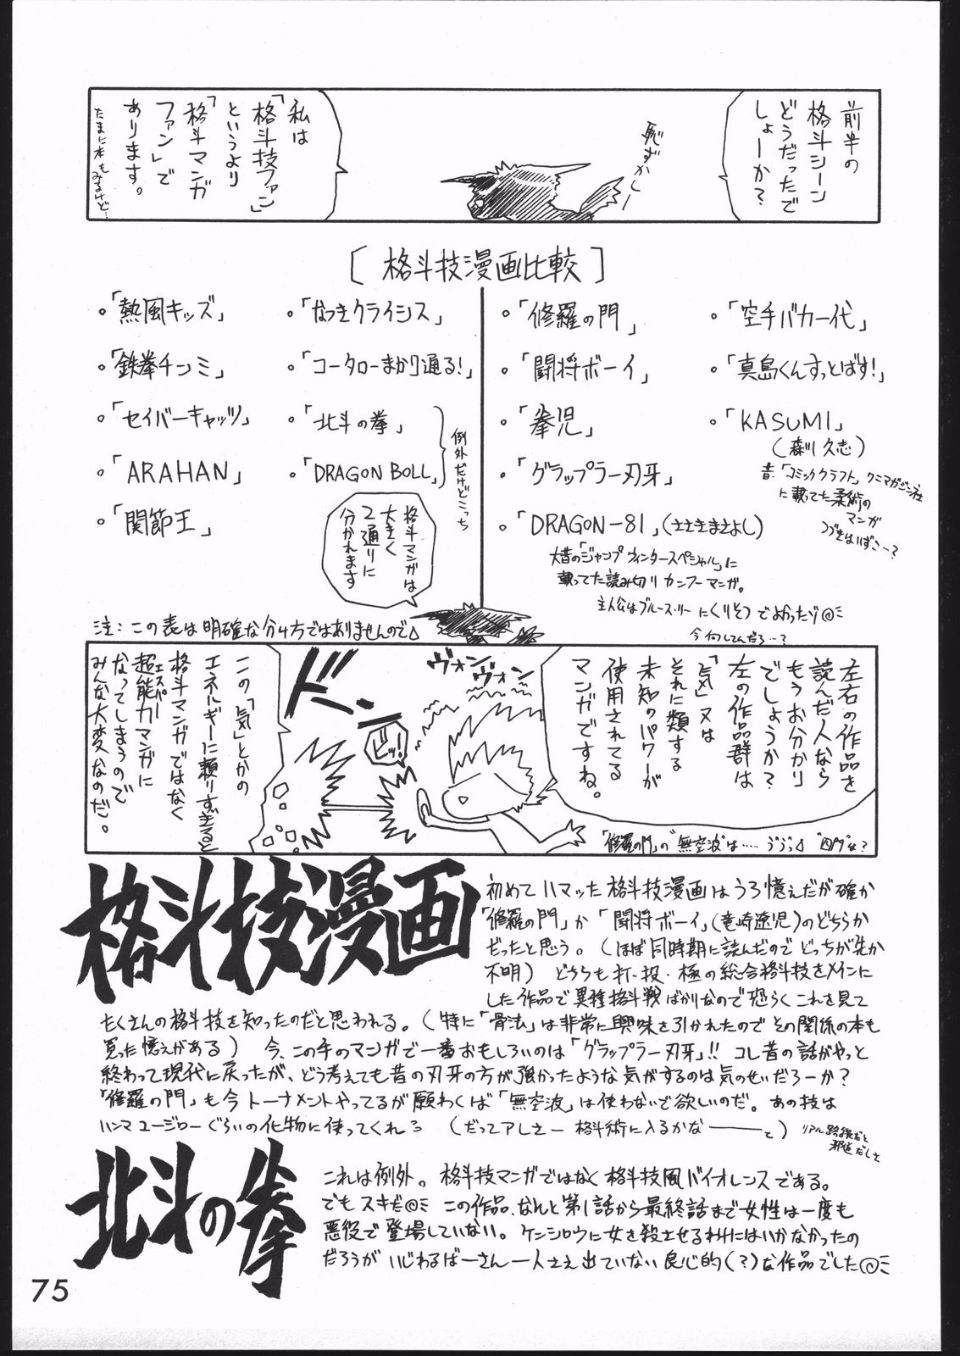 前半の
格斗シーン
どうだったで
しょーか?
恥ずかしー
私は
「格斗技ファン」
というより
「格斗マンガ
ファン」で
あります。
たまに本もみるけど…
[格斗技漫画比較]
・「空手バカ一代」
・「真島くんすっとばす!」
・「KASUMI」
(森川久志)
昔、「コミッククラフト」クニマガジン社
に載ってた柔術の
マンガ
・「修羅の門」
・「闘将ボーイ」
・「拳児」
・「グラップラー刃牙」
・「DRAGON-81」(ささきまさよし)
大昔の「ジャンプウィンタースペシャル」に
載ってた読み切りカンフーマンガ。
主人公はブルース・リーにくりそつでよかったゾ
今何してんだろ…?
・「なつきクライシス」
・「コータローまかり通る!」
・「北斗の拳」
・「DRAGON BOLL」
例外だけどこっち
・「熱風キッズ」
・「鉄拳チンミ」
・「セイバーキャッツ」
・「ARAHAN」
・「関節王」
格斗マンガは
大きく
2通りに
分かれます
注:この表は明確な分け方ではありませんので
左右の作品を
読んだ人なら
もうお分かり
でしょうか?
左の作品群は
「気」又は
それに類する
未知のパワーが
使用されてる
マンガですね。
「修羅の門」の"無空波"は……
ヴォン
ヴォン
ドン
ピッ!
この「気」とかの
エネルギーに頼りすぎると
格斗マンガではなく
超能力マンガに
エスパー
なってしまうので
みんな大変なのだ。
格斗技漫画
初めてハマッた格斗技漫画はうろ憶えだが確か
「修羅の門」か「闘将ボーイ」(竜崎遼児)のどちらか
だったと思う。(ほぼ同時期に読んだのでどっちが先か
不明)どちらも打・投・極の総合格斗技をメインに
した作品で異種格斗戦ばかりなので恐らくこれを見て
たくさんの格斗技を知ったのだと思われる。(特に「骨法」は非常に興味を引かれたのでその関係の本も
買った憶えがある)今、この手のマンガで一番おもしろいのは「グラップラー刃牙」!!コレ昔の話がやっと
終わって現代に戻ったが、どう考えても昔の刃牙の方が強かったような気がするのは気のせいだろーか?
「修羅の門」も今トーナメントやってるが願わくば「無空波」は使わないで欲しいのだ。あの技は
ハンマユージローぐらいの化物に使ってくれる(だってアレさー格斗術に入るかなーーと)
リアル路線だと
邪道だしさ
北斗の拳
これは例外。格斗技マンガではなく格斗技風バイオレンスである。
でもスキだ この作品、なんと第1話から最終話まで女性は一度も
悪役で登場していない。ケンシロウに女を殺させるわけにはいかなかったの
だろうがいじわるばーさん一人さえ出ていない良心的(?)な作品でした
75